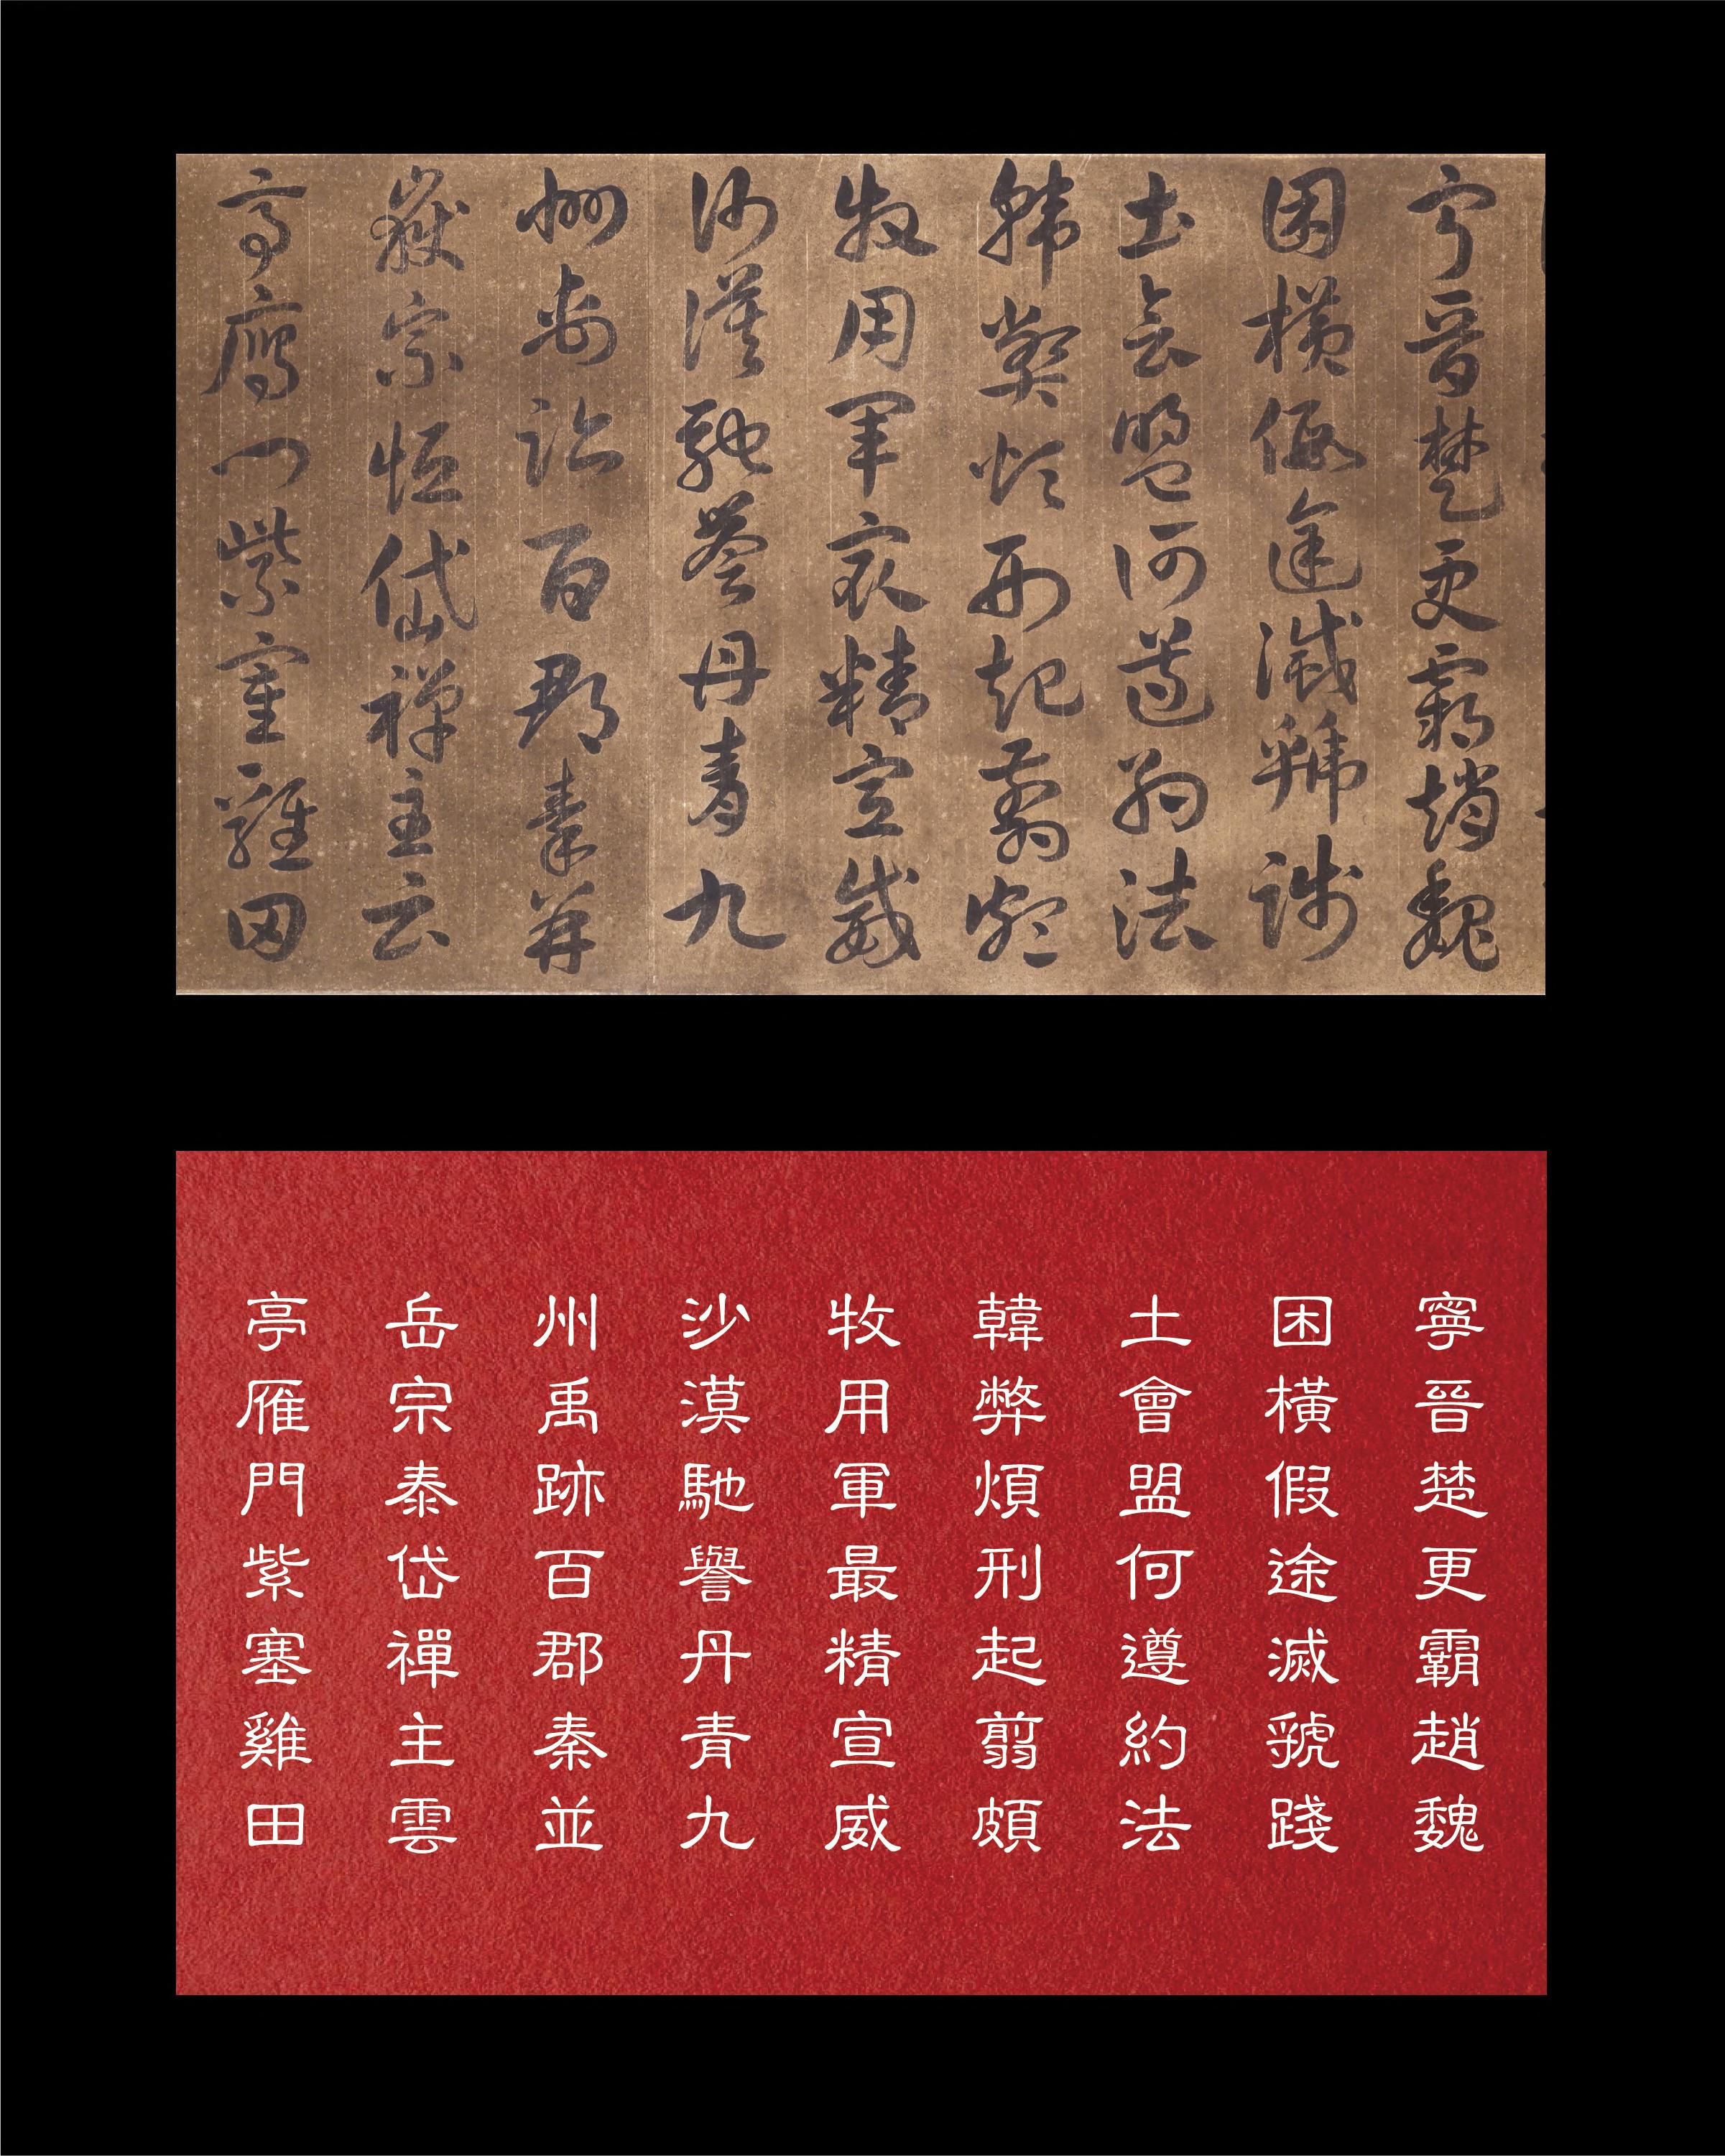 寧晉楚更霸趙魏
困橫假途滅虢踐
土會盟何遵約法
韓弊煩刑起翦頗
牧用軍最精宣威
沙漠馳譽丹青九
州禹跡百郡秦并
嶽宗恒岱禪主云
亭雁門紫塞雞田
寧晉楚更霸趙魏
困橫假途滅虢踐
土會盟何遵約法
韓弊煩刑起翦頗
牧用軍最精宣威
沙漠馳譽丹青九
州禹跡百郡秦並
岳宗泰岱禪主雲
亭雁門紫塞雞田